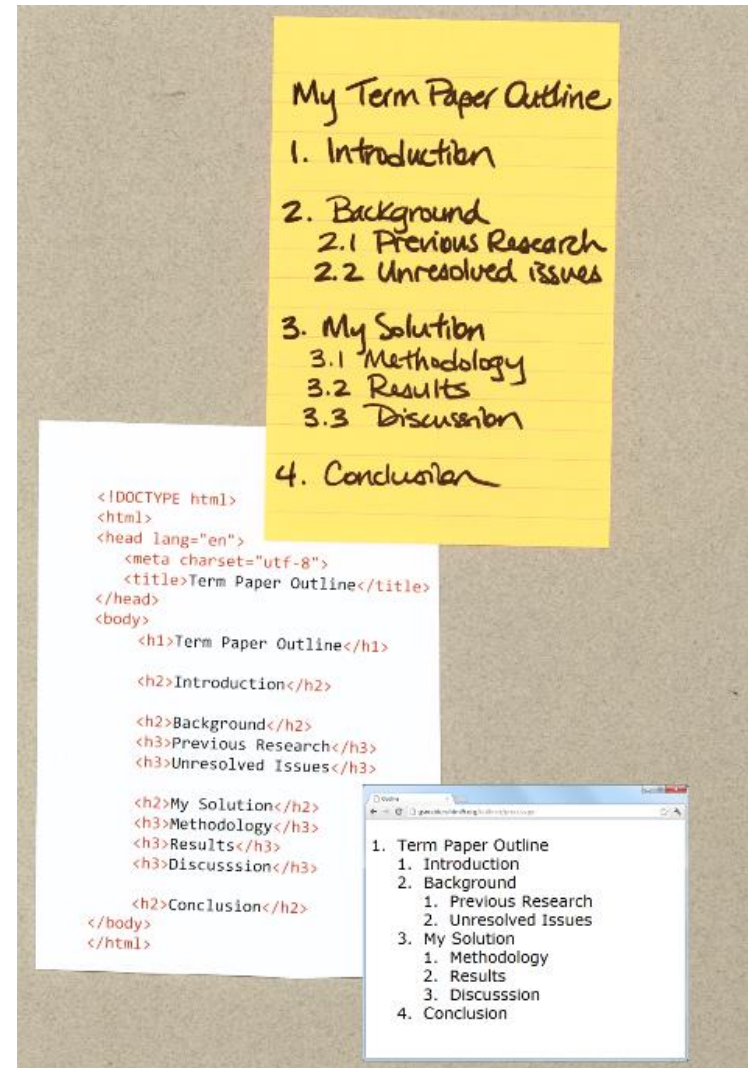 My Term Paper Outline
1. Introduction
2. Background
2.1 Previous Research
2.2 Unresolved issues
3. My Solution
3.1 Methodology
3.2 Results
3.3 Discussion
4. Conclusion
<!DOCTYPE html>
<html>
<head lang="en">
<meta charset="utf-8">
<title>Term Paper Outline</title>
</head>
<body>
<h1>Term Paper Outline</h1>
<h2>Introduction</h2>
<h2>Background</h2>
<h3>Previous Research</h3>
<h3>Unresolved Issues</h3>
<h2>My Solution</h2>
<h3>Methodology</h3>
<h3>Results</h3>
<h3>Discusssion</h3>
<h2>Conclusion</h2>
</body>
</html>
1. Term Paper Outline
1. Introduction
2. Background
1. Previous Research
2. Unresolved Issues
3. My Solution
1. Methodology
2. Results
3. Discusssion
4. Conclusion